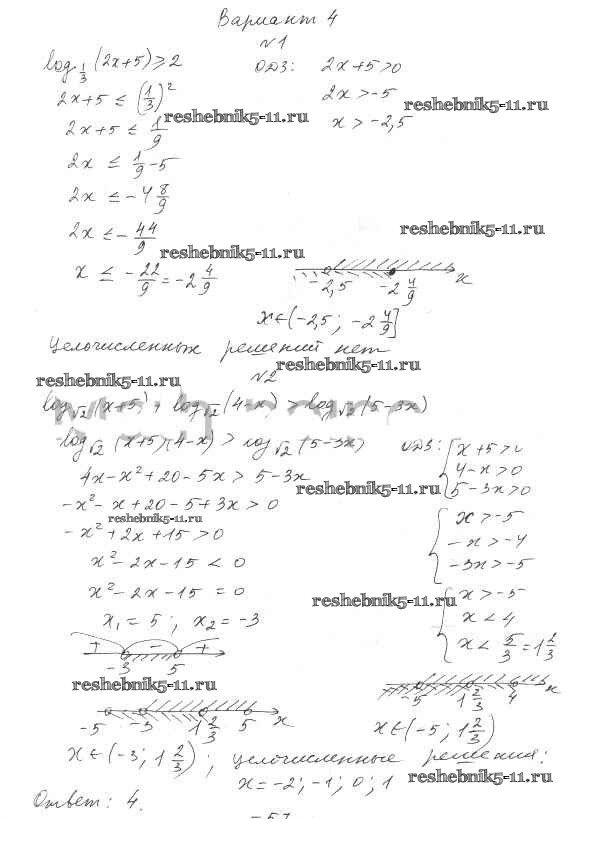 Вариант 4
№1
log_{1/3}(2x+5) ≥ 2
ОДЗ: 2x+5>0
2x+5 ≤ (1/3)^2
2x > -5
reshebnik5-11.ru
reshebnik5-11.ru
2x+5 ≤ 1/9
x > -2,5
2x ≤ 1/9 - 5
2x ≤ -4 8/9
2x ≤ - 44/9
reshebnik5-11.ru
reshebnik5-11.ru
x ≤ - 22/9 = -2 4/9
-2,5 -2 4/9 x
x ∈ (-2,5; -2 4/9]
Целочисленных решений нет
reshebnik5-11.ru
№2
reshebnik5-11.ru
log_{√2}(x+5) + log_{√2}(4-x) > log_{√2}(5-3x)
log_{√2}(x+5)(4-x) > log_{√2}(5-3x)
ОДЗ: { x+5>0
4-x>0
5-3x>0
4x-x²+20-5x > 5-3x
reshebnik5-11.ru
-x²-x+20-5+3x > 0
reshebnik5-11.ru
{ x>-5
-x>-4
-3x>-5
-x²+2x+15>0
x²-2x-15 < 0
x²-2x-15 = 0
reshebnik5-11.ru
{ x>-5
x<4
x< 5/3 = 1 2/3
x₁ = 5; x₂ = -3
+ - +
-3 5
reshebnik5-11.ru
-5 1 2/3 4 x
-5 -3 1 2/3 5 x
x ∈ (-5; 1 2/3)
x ∈ (-3; 1 2/3); целочисленные решения:
x = -2; -1; 0; 1
reshebnik5-11.ru
Ответ: 4.